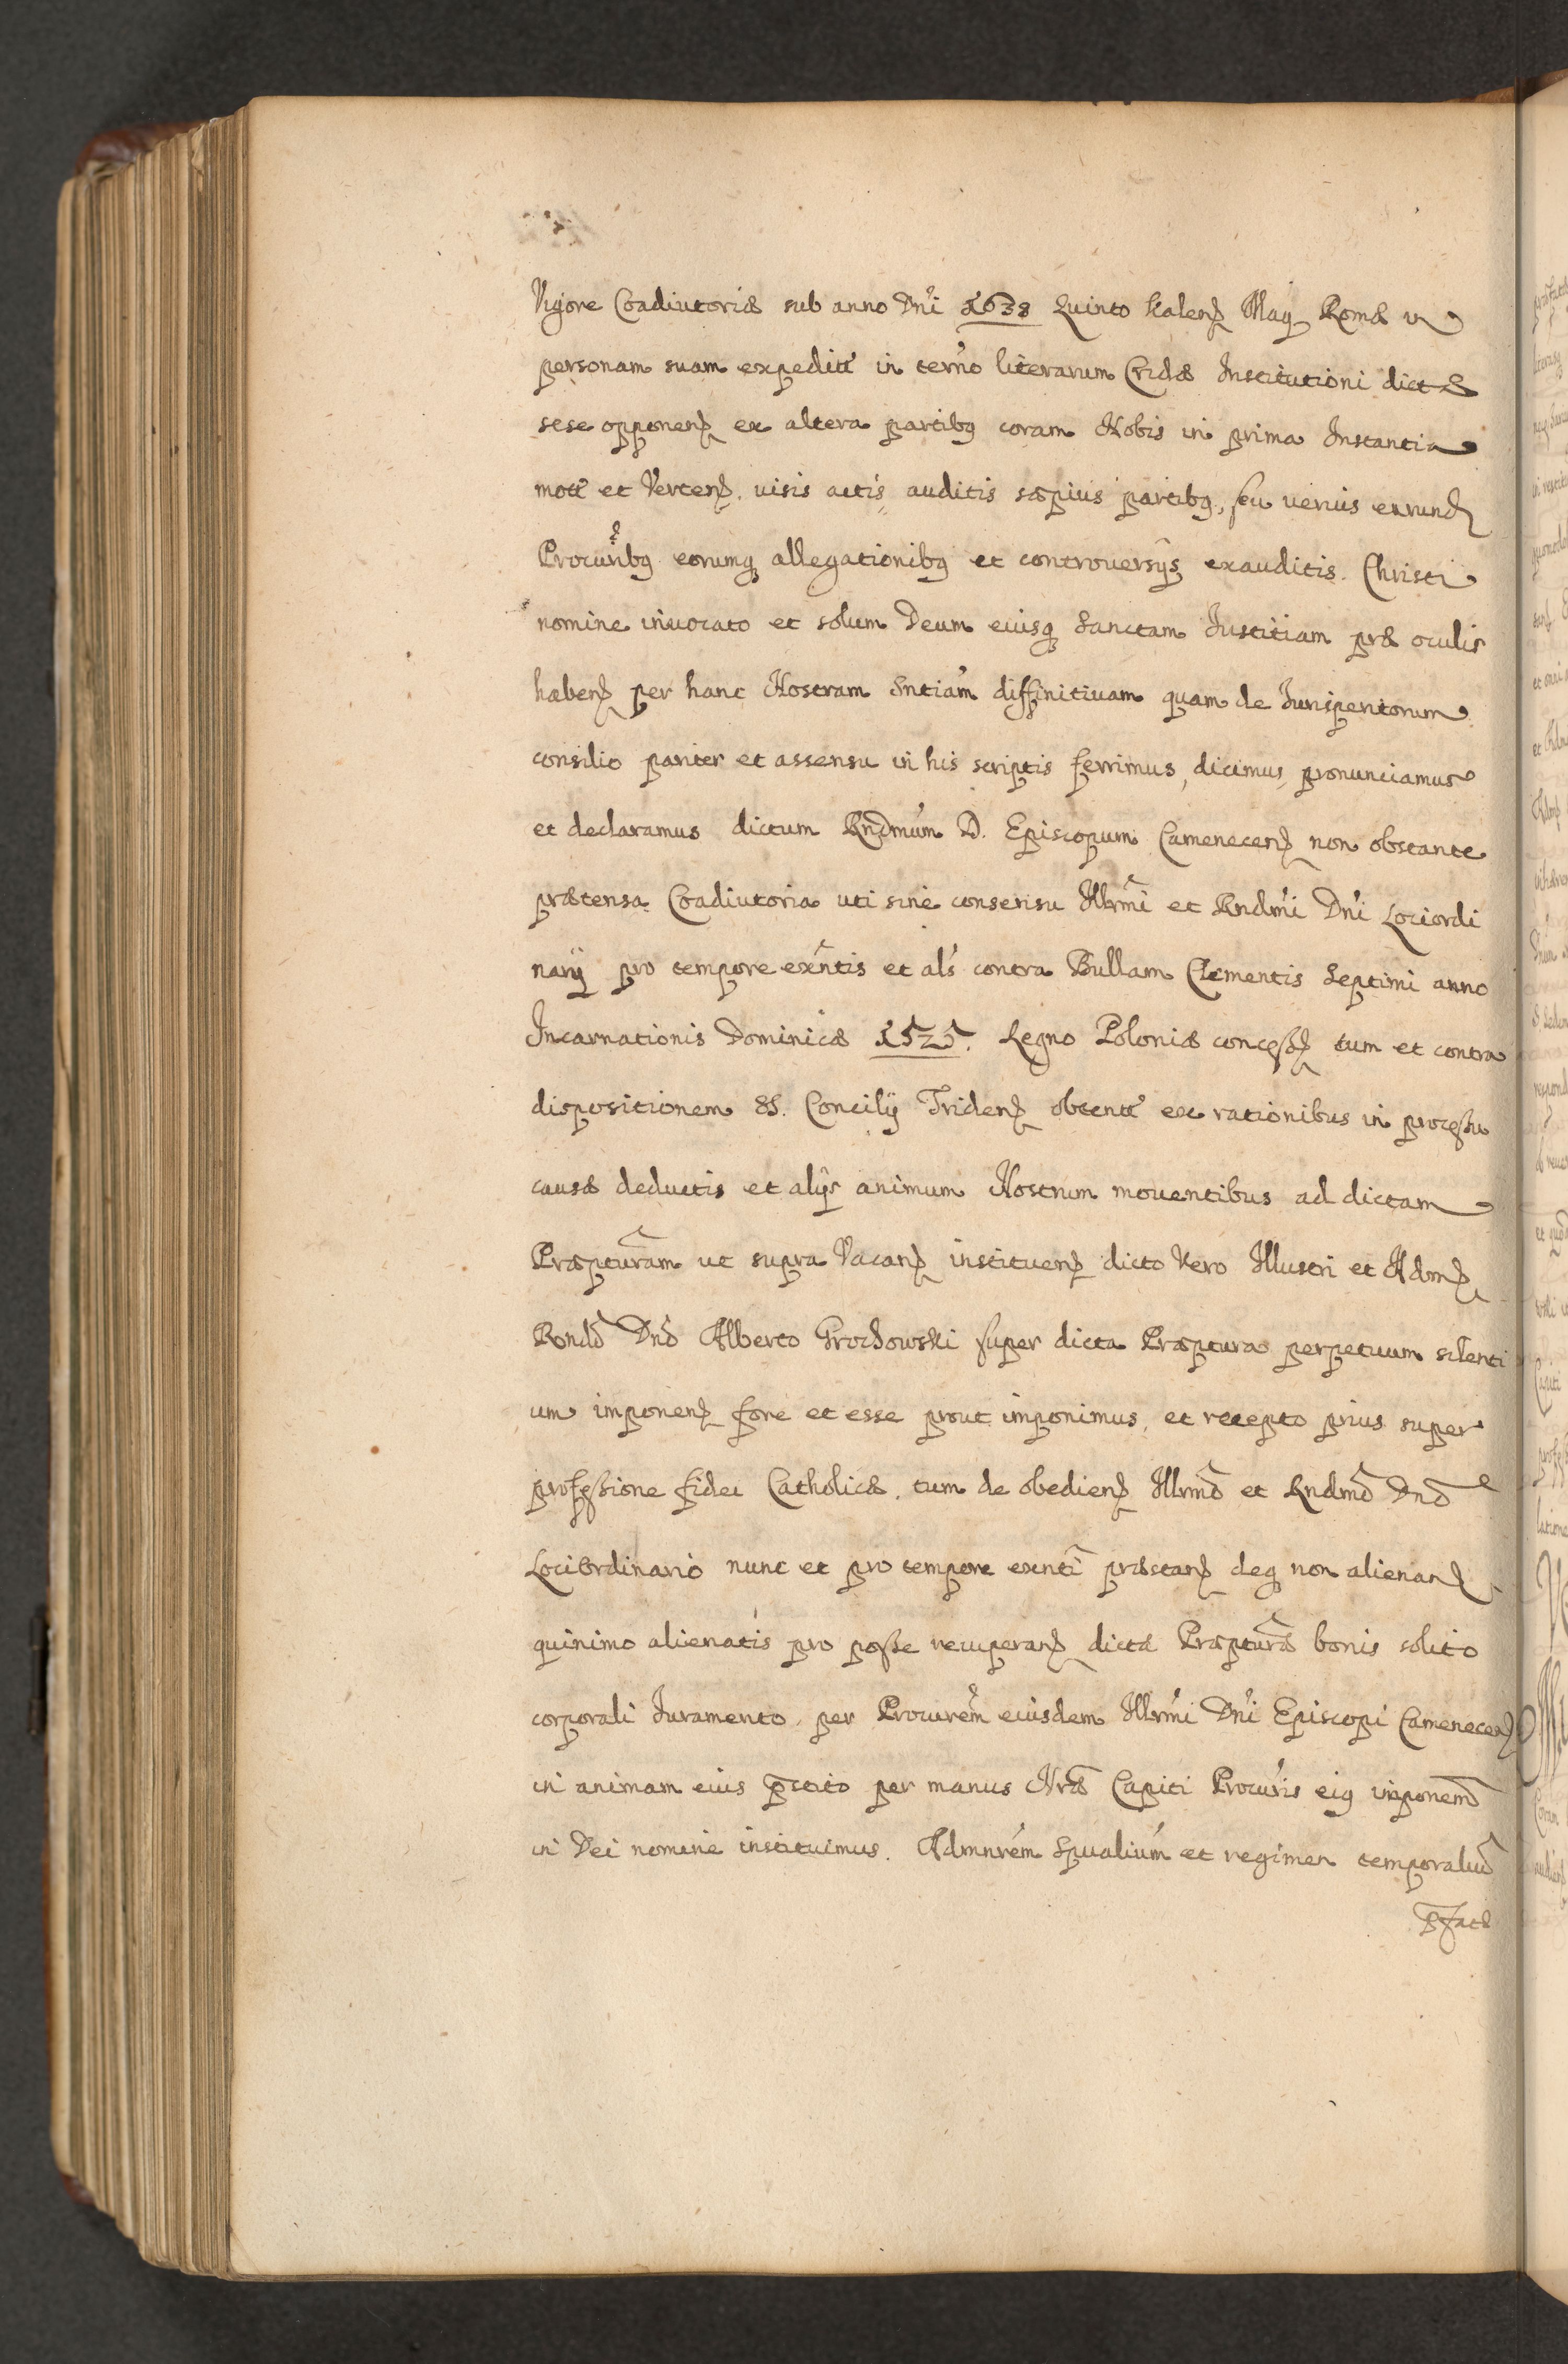 Vigore Coadiutoriæ sub anno Dni 1638 Quinto Kalen Maij Romæ in
personam suam expeditt in termo literarum Cridæ Institutioni dictæ
sese opponen ex altera partibq coram Nobis in prima Instantia
mott et Verten. visis actis auditis sæpius partibq, seu verius earund
Procurribq eorumq allegationibq et controversijs exauditis. Christi
nomine invocato et solum Deum eiusq Sanctam Iustitiam præ oculis
haben per hanc Nostram Sntiam diffinitivam quam de Iurisperitorum
consilio pariter et assensu in his scriptis ferrimus, dicimus, pronunciamus
et declaramus dictum Rndmum D. Episcopum Camenecen non obstante
prætensa Coadiutoria uti sine consensu Illrmi et Rndmi Dni Lociordi
narij pro tempore exntis et als contra Bullam Clementis Septimi anno
Incarnationis Dominicæ 1525. Regno Poloniæ concess tum et contra
dispositionem SS. Concilij Triden obtentt ex rationibus in processu
causæ deductis et alijs animum Nostrum moventibus ad dictam
Præpturam ut supra Vacan instituen dicto Vero Illustri et Adm
Rondo Dno Alberto Grochowski super dicta Præptura perpetuum silenti
um imponen fore et esse prout imponimus, et recepto prius super
professione fidei Catholicæ, tum de obedien Illrmo et Rndmo Dno
LociOrdinario nunc et pro tempore exnti præstan deq non alienan
quinimo alienatis pro posse recuperan dictæ Præpturæ bonis solito
corporali Iuramento per Procurem eiusdem Illrmi Dni Episcopi Camenecen
in animam eius pstito per manus Nræ Capiti Procuris eiq imponem
in Dei nomine instituimus. Admnrem Spualium et regimen temporalium
pfatæ